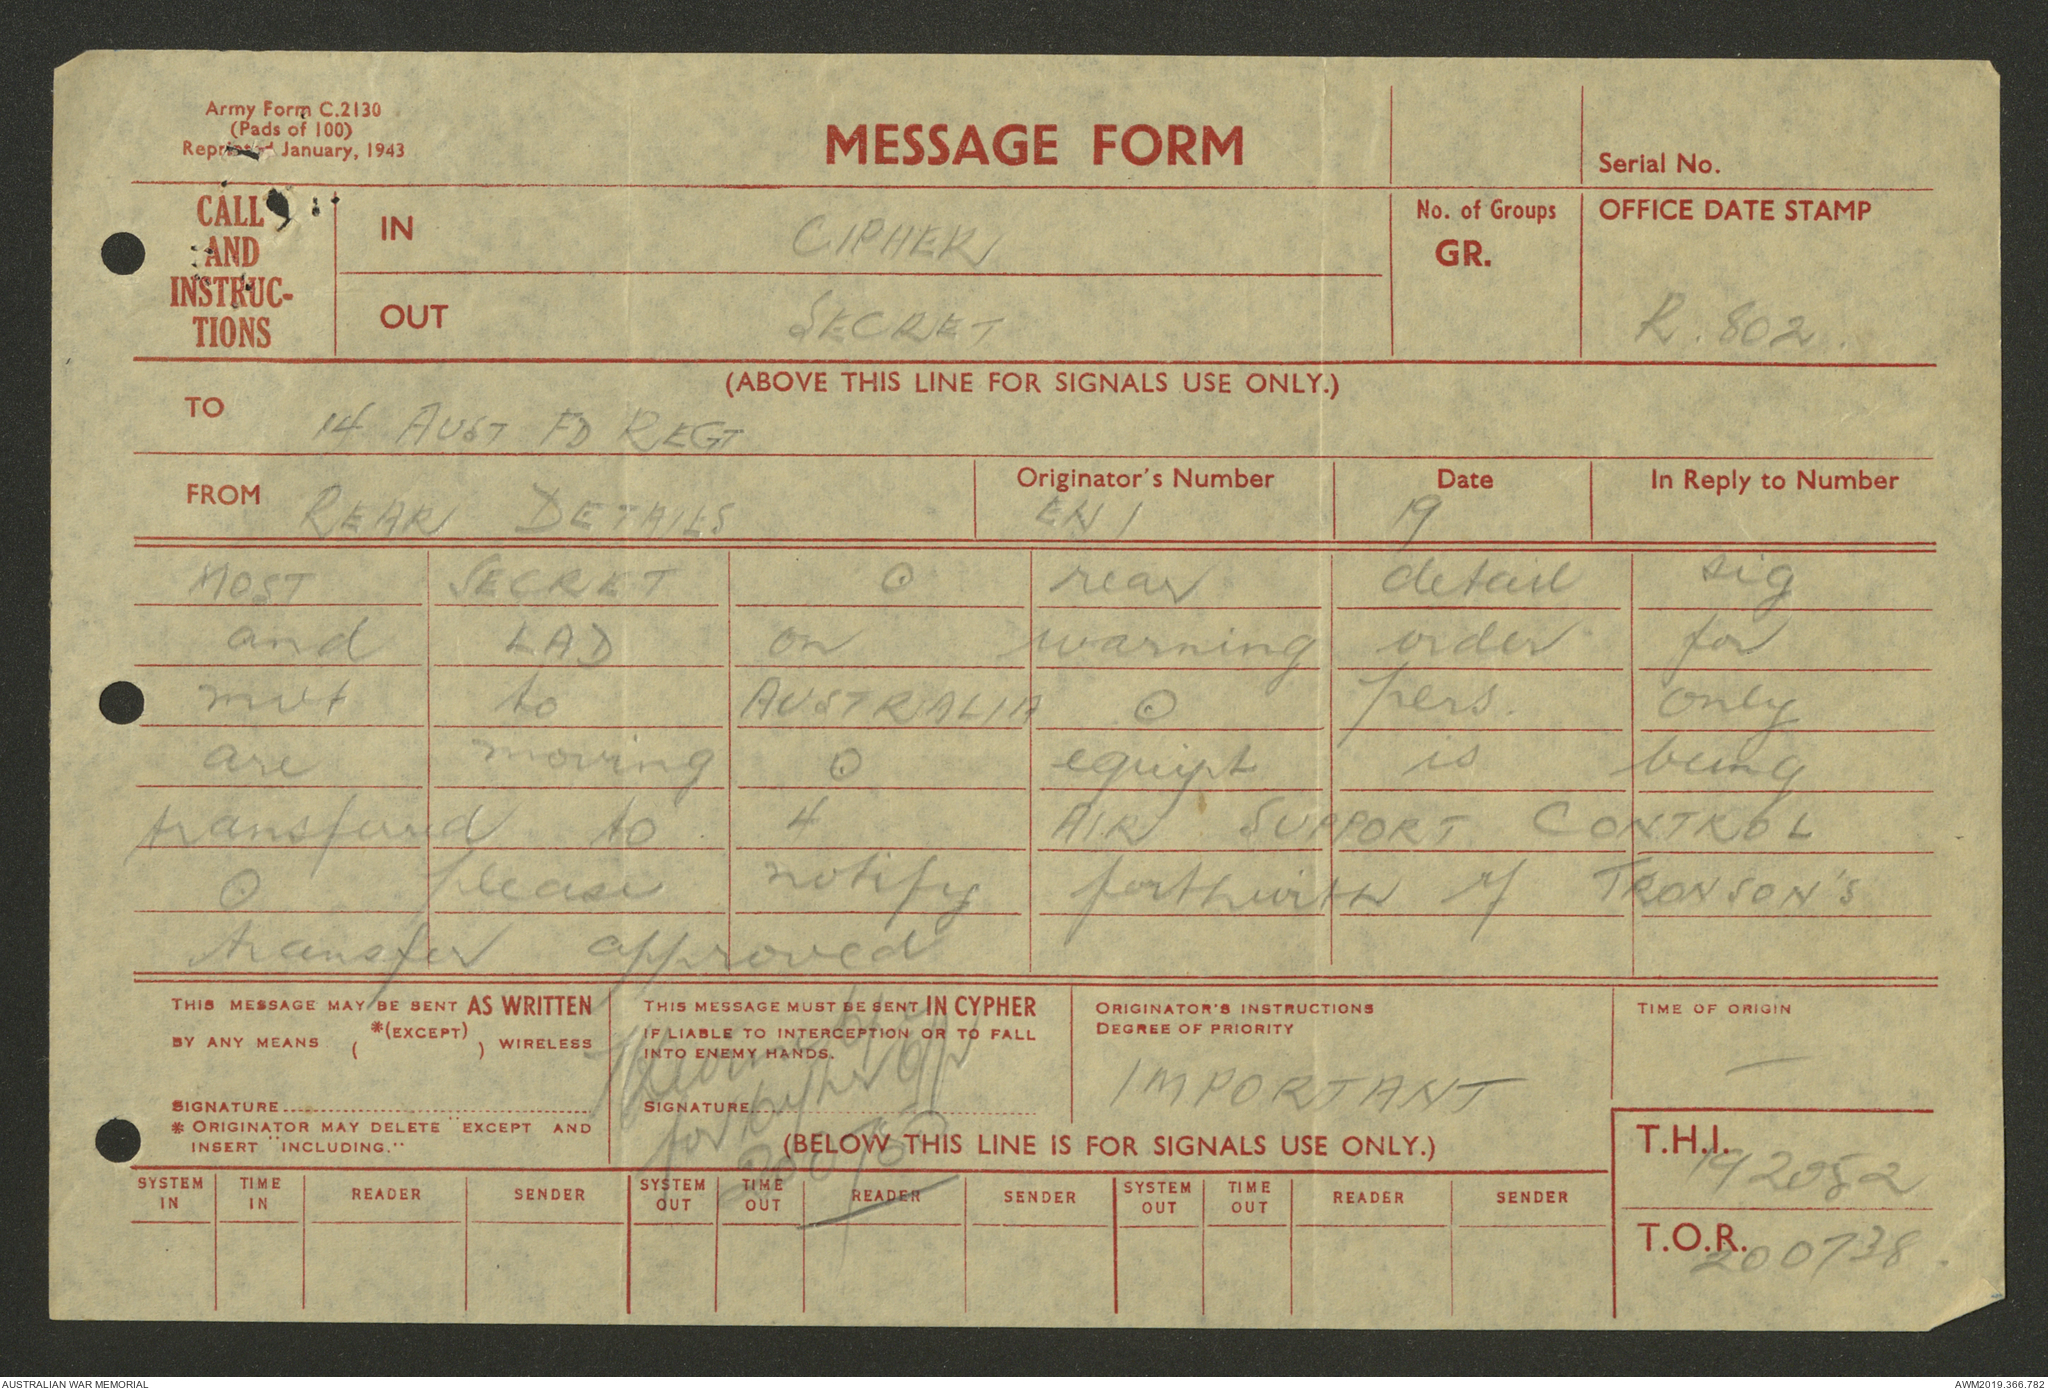 Army Form C.2130
(Pads of 100)
Reprinted January, 1943
MESSAGE FORM
Serial No.
CALL
AND
INSTRUC-
TIONS
IN
CIPHER
No. of Groups
GR.
OFFICE DATE STAMP
OUT
SECRET
R. 802.
(ABOVE THIS LINE FOR SIGNALS USE ONLY.)
TO
14 AUST FD REGT
FROM
REAR DETAILS
Originator's Number
EN 1
Date
19
In Reply to Number
MOST SECRET ⊙ rear detail sig
and LAD on warning order for
mvt to AUSTRALIA ⊙ pers. only
are moving ⊙ equipt is being
transferred to 4 AIR SUPPORT CONTROL
⊙ please notify forthwith if TRONSON'S
transfer approved
THIS MESSAGE MAY BE SENT AS WRITTEN
BY ANY MEANS ( *(EXCEPT) ) WIRELESS
SIGNATURE
* ORIGINATOR MAY DELETE "EXCEPT AND
INSERT "INCLUDING."
THIS MESSAGE MUST BE SENT IN CYPHER
IF LIABLE TO INTERCEPTION OR TO FALL
INTO ENEMY HANDS.
SIGNATURE
for
ORIGINATOR'S INSTRUCTIONS
DEGREE OF PRIORITY
IMPORTANT
TIME OF ORIGIN
—
(BELOW THIS LINE IS FOR SIGNALS USE ONLY.)
T.H.I.
192052
T.O.R.
200738
SYSTEM IN
TIME IN
READER
SENDER
SYSTEM OUT
TIME OUT
READER
SENDER
SYSTEM OUT
TIME OUT
READER
SENDER
AUSTRALIAN WAR MEMORIAL
AWM2019.366.782